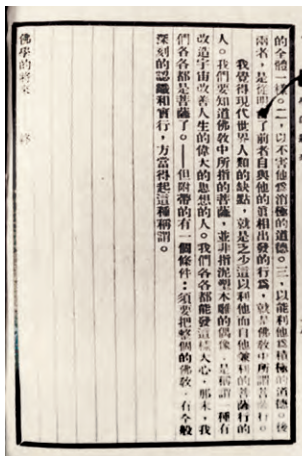 的全體一樣。二、以不害他爲消極的道德。三、以能利他爲積極的道德。後
兩者，是從明了前者自與他的眞相出發的行爲，就是佛敎中所謂菩薩行。
我覺得現代世界人類的缺點，就是乏少這以利他而自他兼利的菩薩行的
人。我們要知道佛敎中所指的菩薩，並非指泥塑木雕的偶像，是稱謂一種有
改造宇宙改善人生的偉大的思想的人。我們各各都能發這樣大心，那末，我
們各各都是菩薩了。——但附帶的有一個條件：須要把整個的佛敎，有全般
深刻的認識和實行，方當得起這種稱謂。
佛學的將來
終